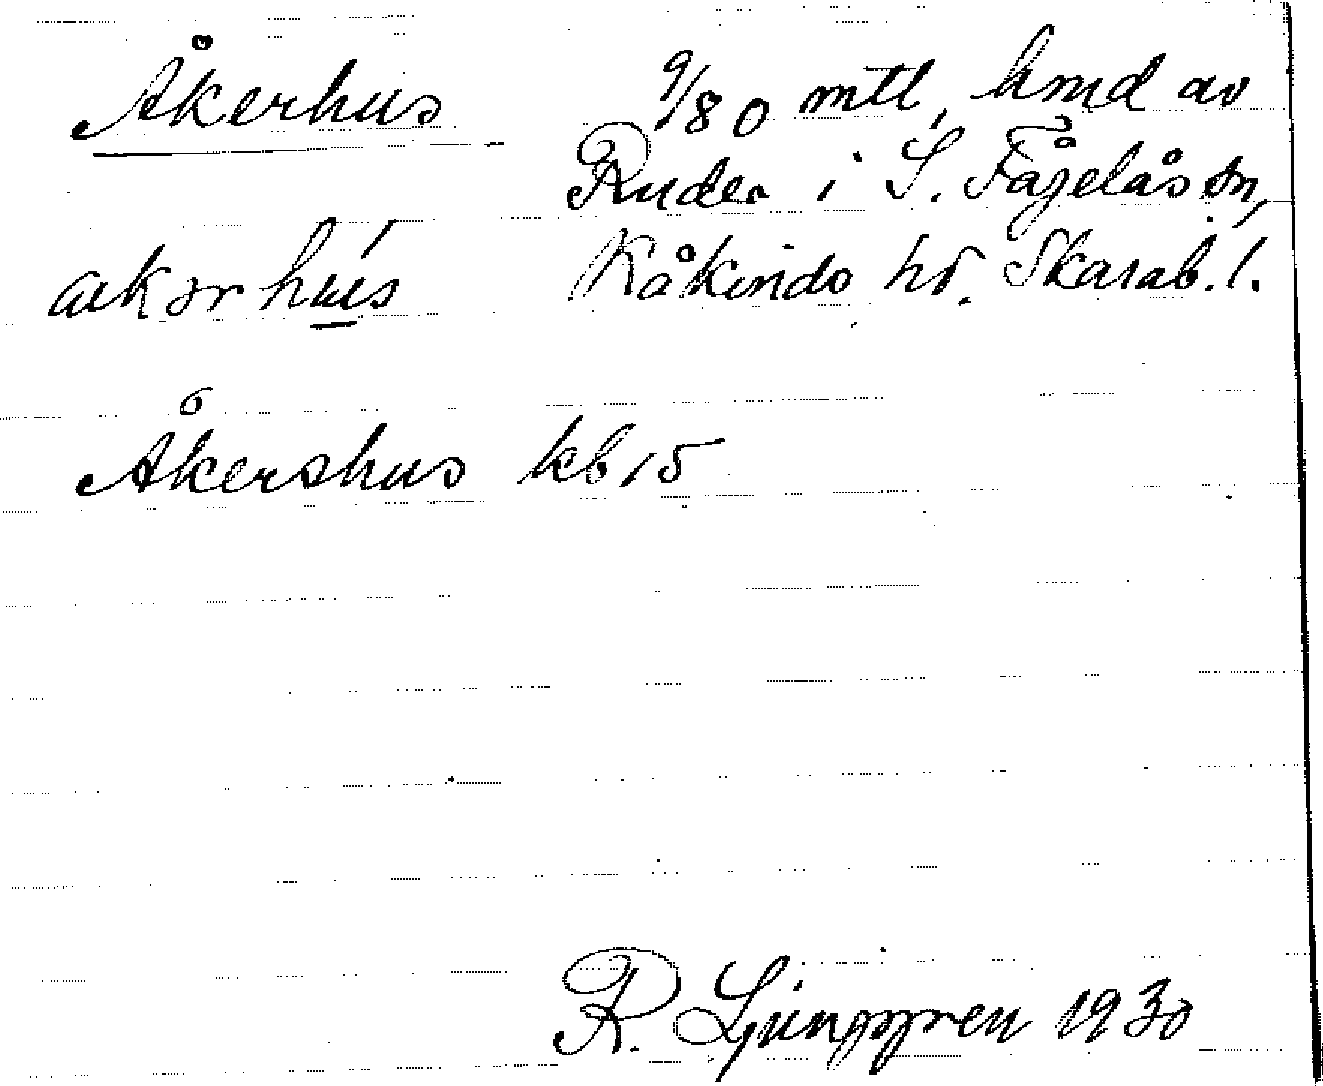 Åkerhus
9/80 mtl, hmd av
Ruder i S. Fågelås sn,
Kåkinds hd. Skarab. l.
Åkershus kb 15
R. Ljunggren 1930